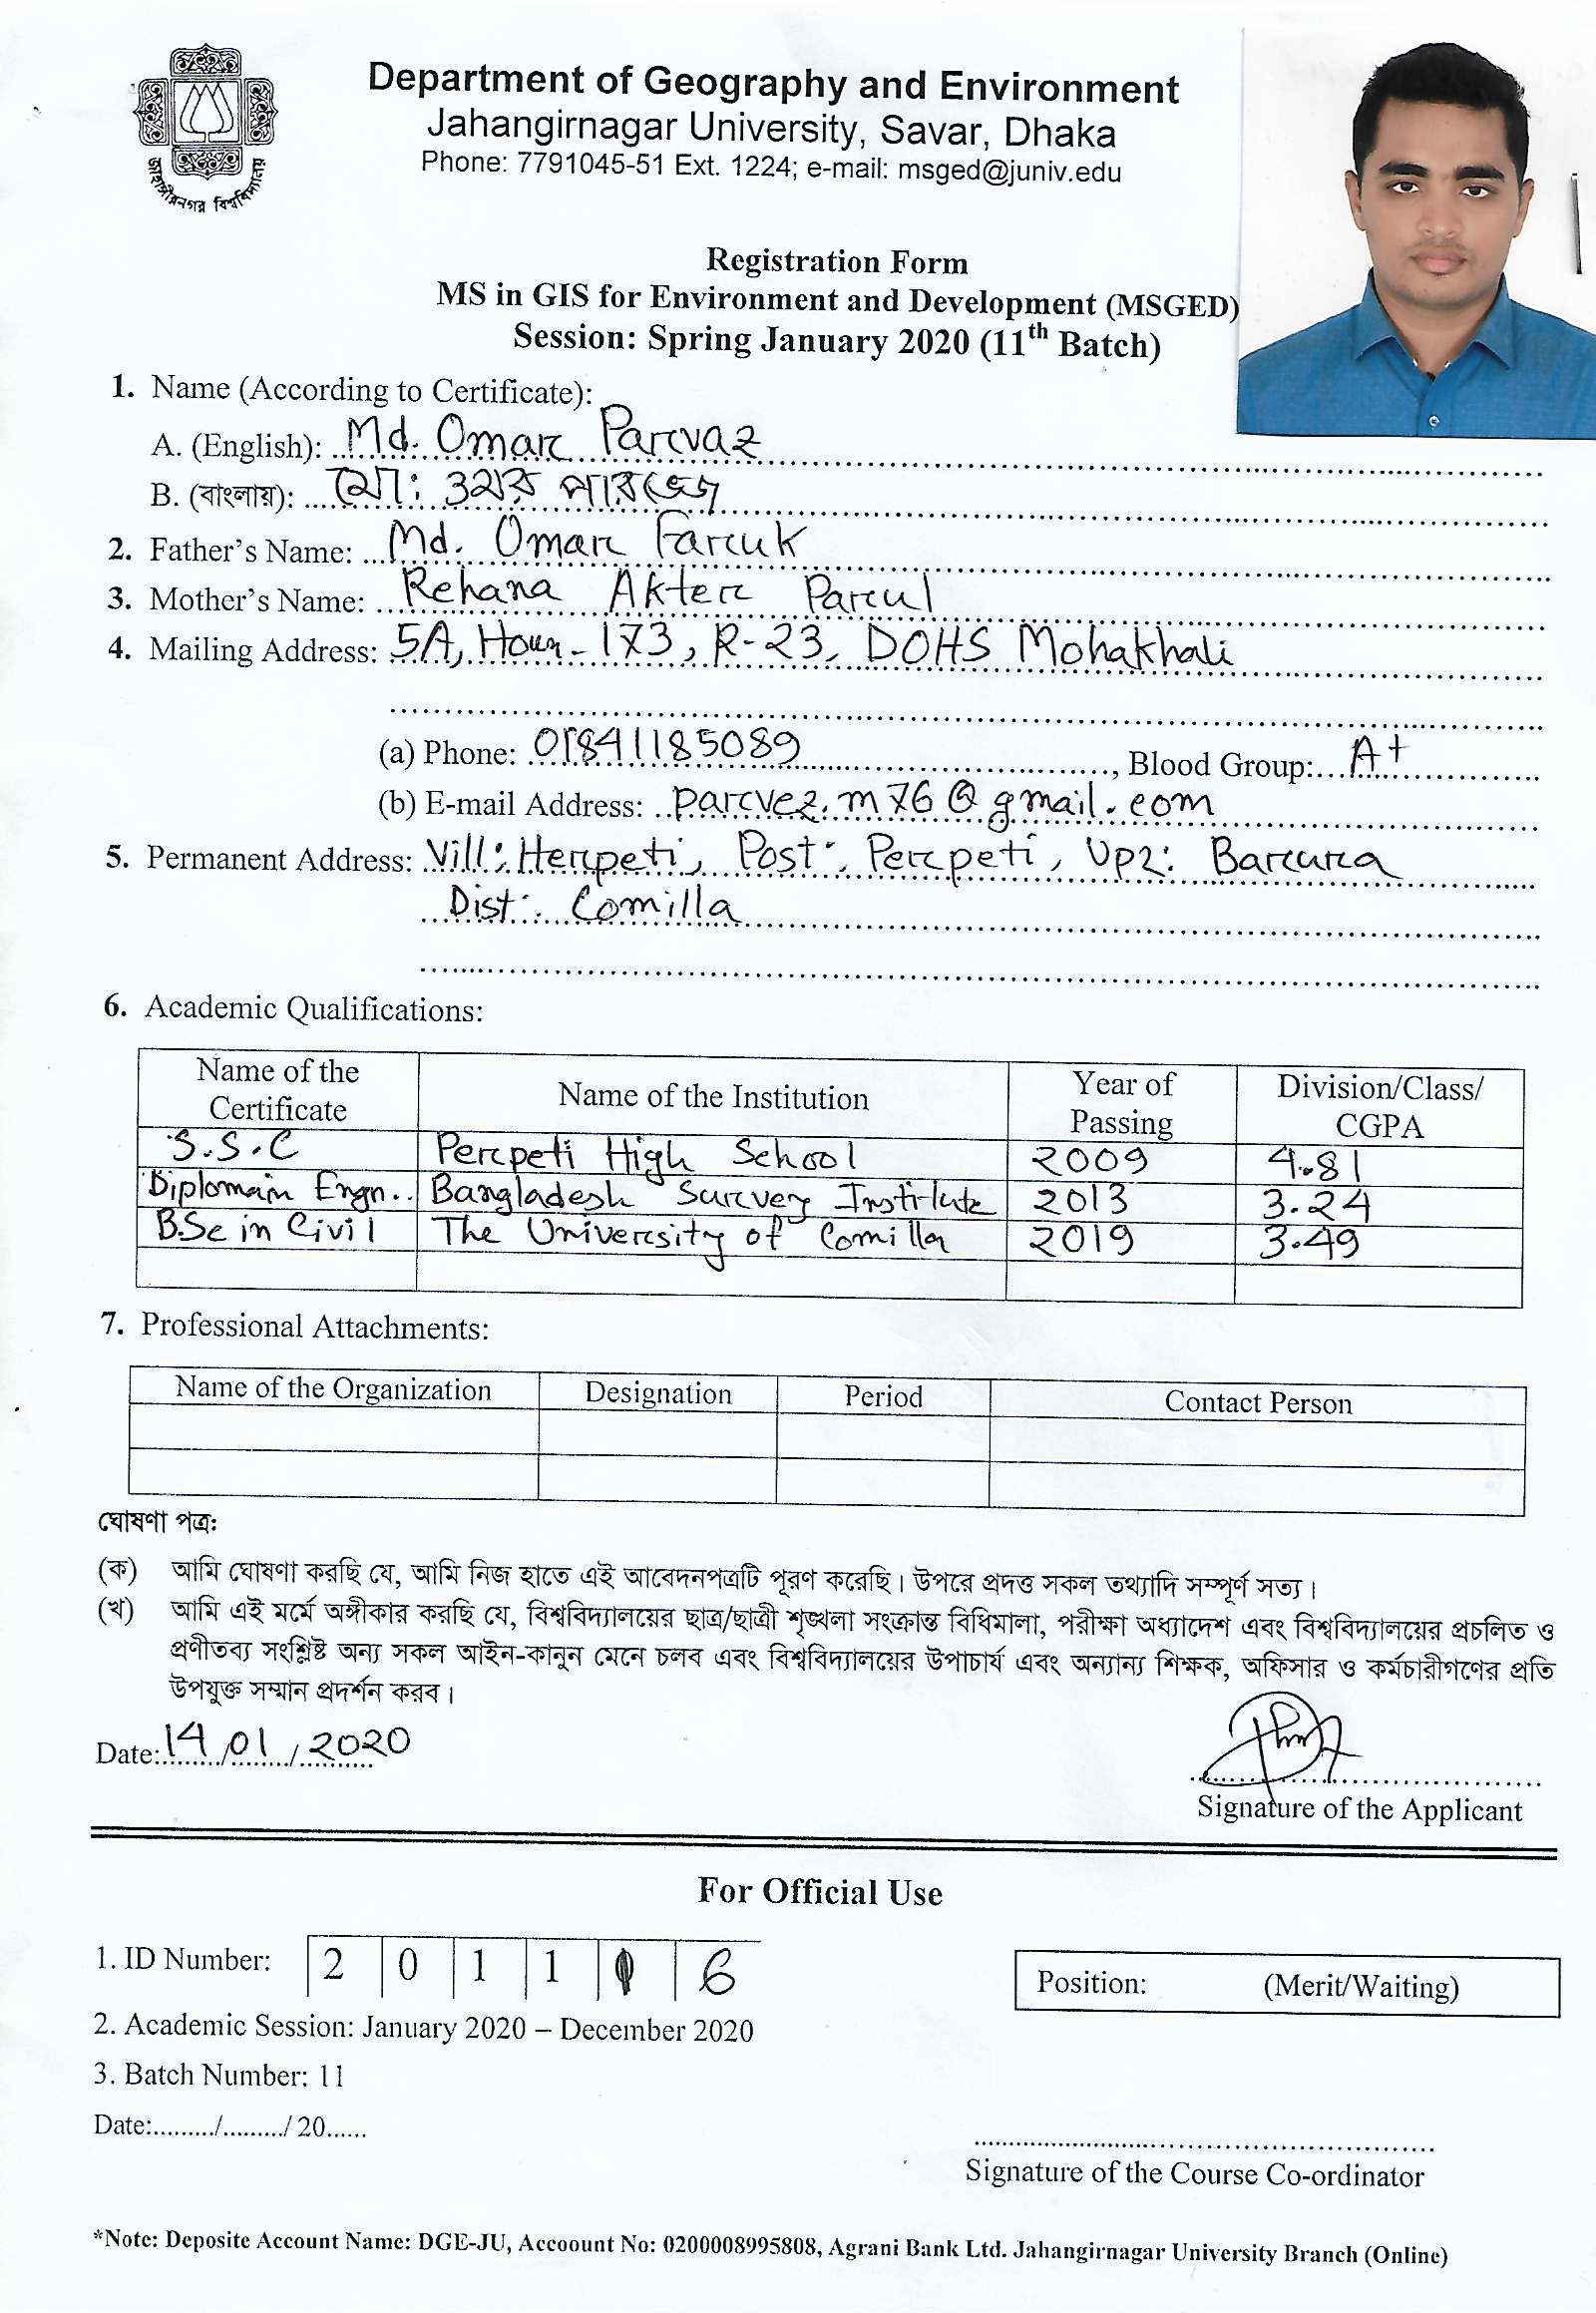 জাহাঙ্গীরনগর বিশ্ববিদ্যালয়
Department of Geography and Environment
Jahangirnagar University, Savar, Dhaka
Phone: 7791045-51 Ext. 1224; e-mail: msged@juniv.edu
Registration Form
MS in GIS for Environment and Development (MSGED)
Session: Spring January 2020 (11th Batch)
1. Name (According to Certificate):
A. (English): Md. Omar Parvaz
B. (বাংলায়): মো: ওমর পারভেজ
2. Father's Name: Md. Omar Faruk
3. Mother's Name: Rehana Akter Parul
4. Mailing Address: 5A, House-173, R-23, DOHS Mohakhali
(a) Phone: 01841185089, Blood Group: A+
(b) E-mail Address: parvez.m76@gmail.com
5. Permanent Address: Vill: Herpeti, Post: Perpeti, Upz: Barura
Dist: Comilla
6. Academic Qualifications:
Name of the Certificate Name of the Institution Year of Passing Division/Class/CGPA
S.S.C Perpeti High School 2009 4.81
Diploma in Engn.. Bangladesh Survey Institute 2013 3.24
B.Sc in Civil The University of Comilla 2019 3.49
7. Professional Attachments:
Name of the Organization Designation Period Contact Person
ঘোষণা পত্র:
(ক) আমি ঘোষণা করছি যে, আমি নিজ হাতে এই আবেদনপত্রটি পূরণ করেছি। উপরে প্রদত্ত সকল তথ্যাদি সম্পূর্ণ সত্য।
(খ) আমি এই মর্মে অঙ্গীকার করছি যে, বিশ্ববিদ্যালয়ের ছাত্র/ছাত্রী শৃঙ্খলা সংক্রান্ত বিধিমালা, পরীক্ষা অধ্যাদেশ এবং বিশ্ববিদ্যালয়ের প্রচলিত ও
প্রণীতব্য সংশ্লিষ্ট অন্য সকল আইন-কানুন মেনে চলব এবং বিশ্ববিদ্যালয়ের উপাচার্য এবং অন্যান্য শিক্ষক, অফিসার ও কর্মচারীগণের প্রতি
উপযুক্ত সম্মান প্রদর্শন করব।
Date: 14/01/2020
Signature of the Applicant
For Official Use
1. ID Number: 2 0 1 1 0 6
Position: (Merit/Waiting)
2. Academic Session: January 2020 – December 2020
3. Batch Number: 11
Date:........./........./ 20......
Signature of the Course Co-ordinator
*Note: Deposite Account Name: DGE-JU, Accoount No: 0200008995808, Agrani Bank Ltd. Jahangirnagar University Branch (Online)